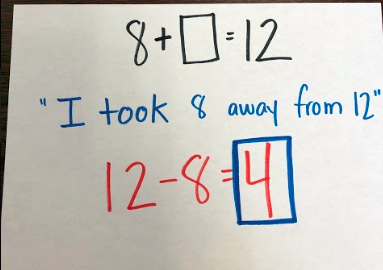 8+□=12
"I took 8 away from 12"
12-8=4